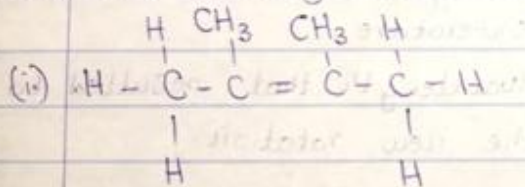 H CH₃ CH₃ H
(i) H - C - C = C - C - H
H H